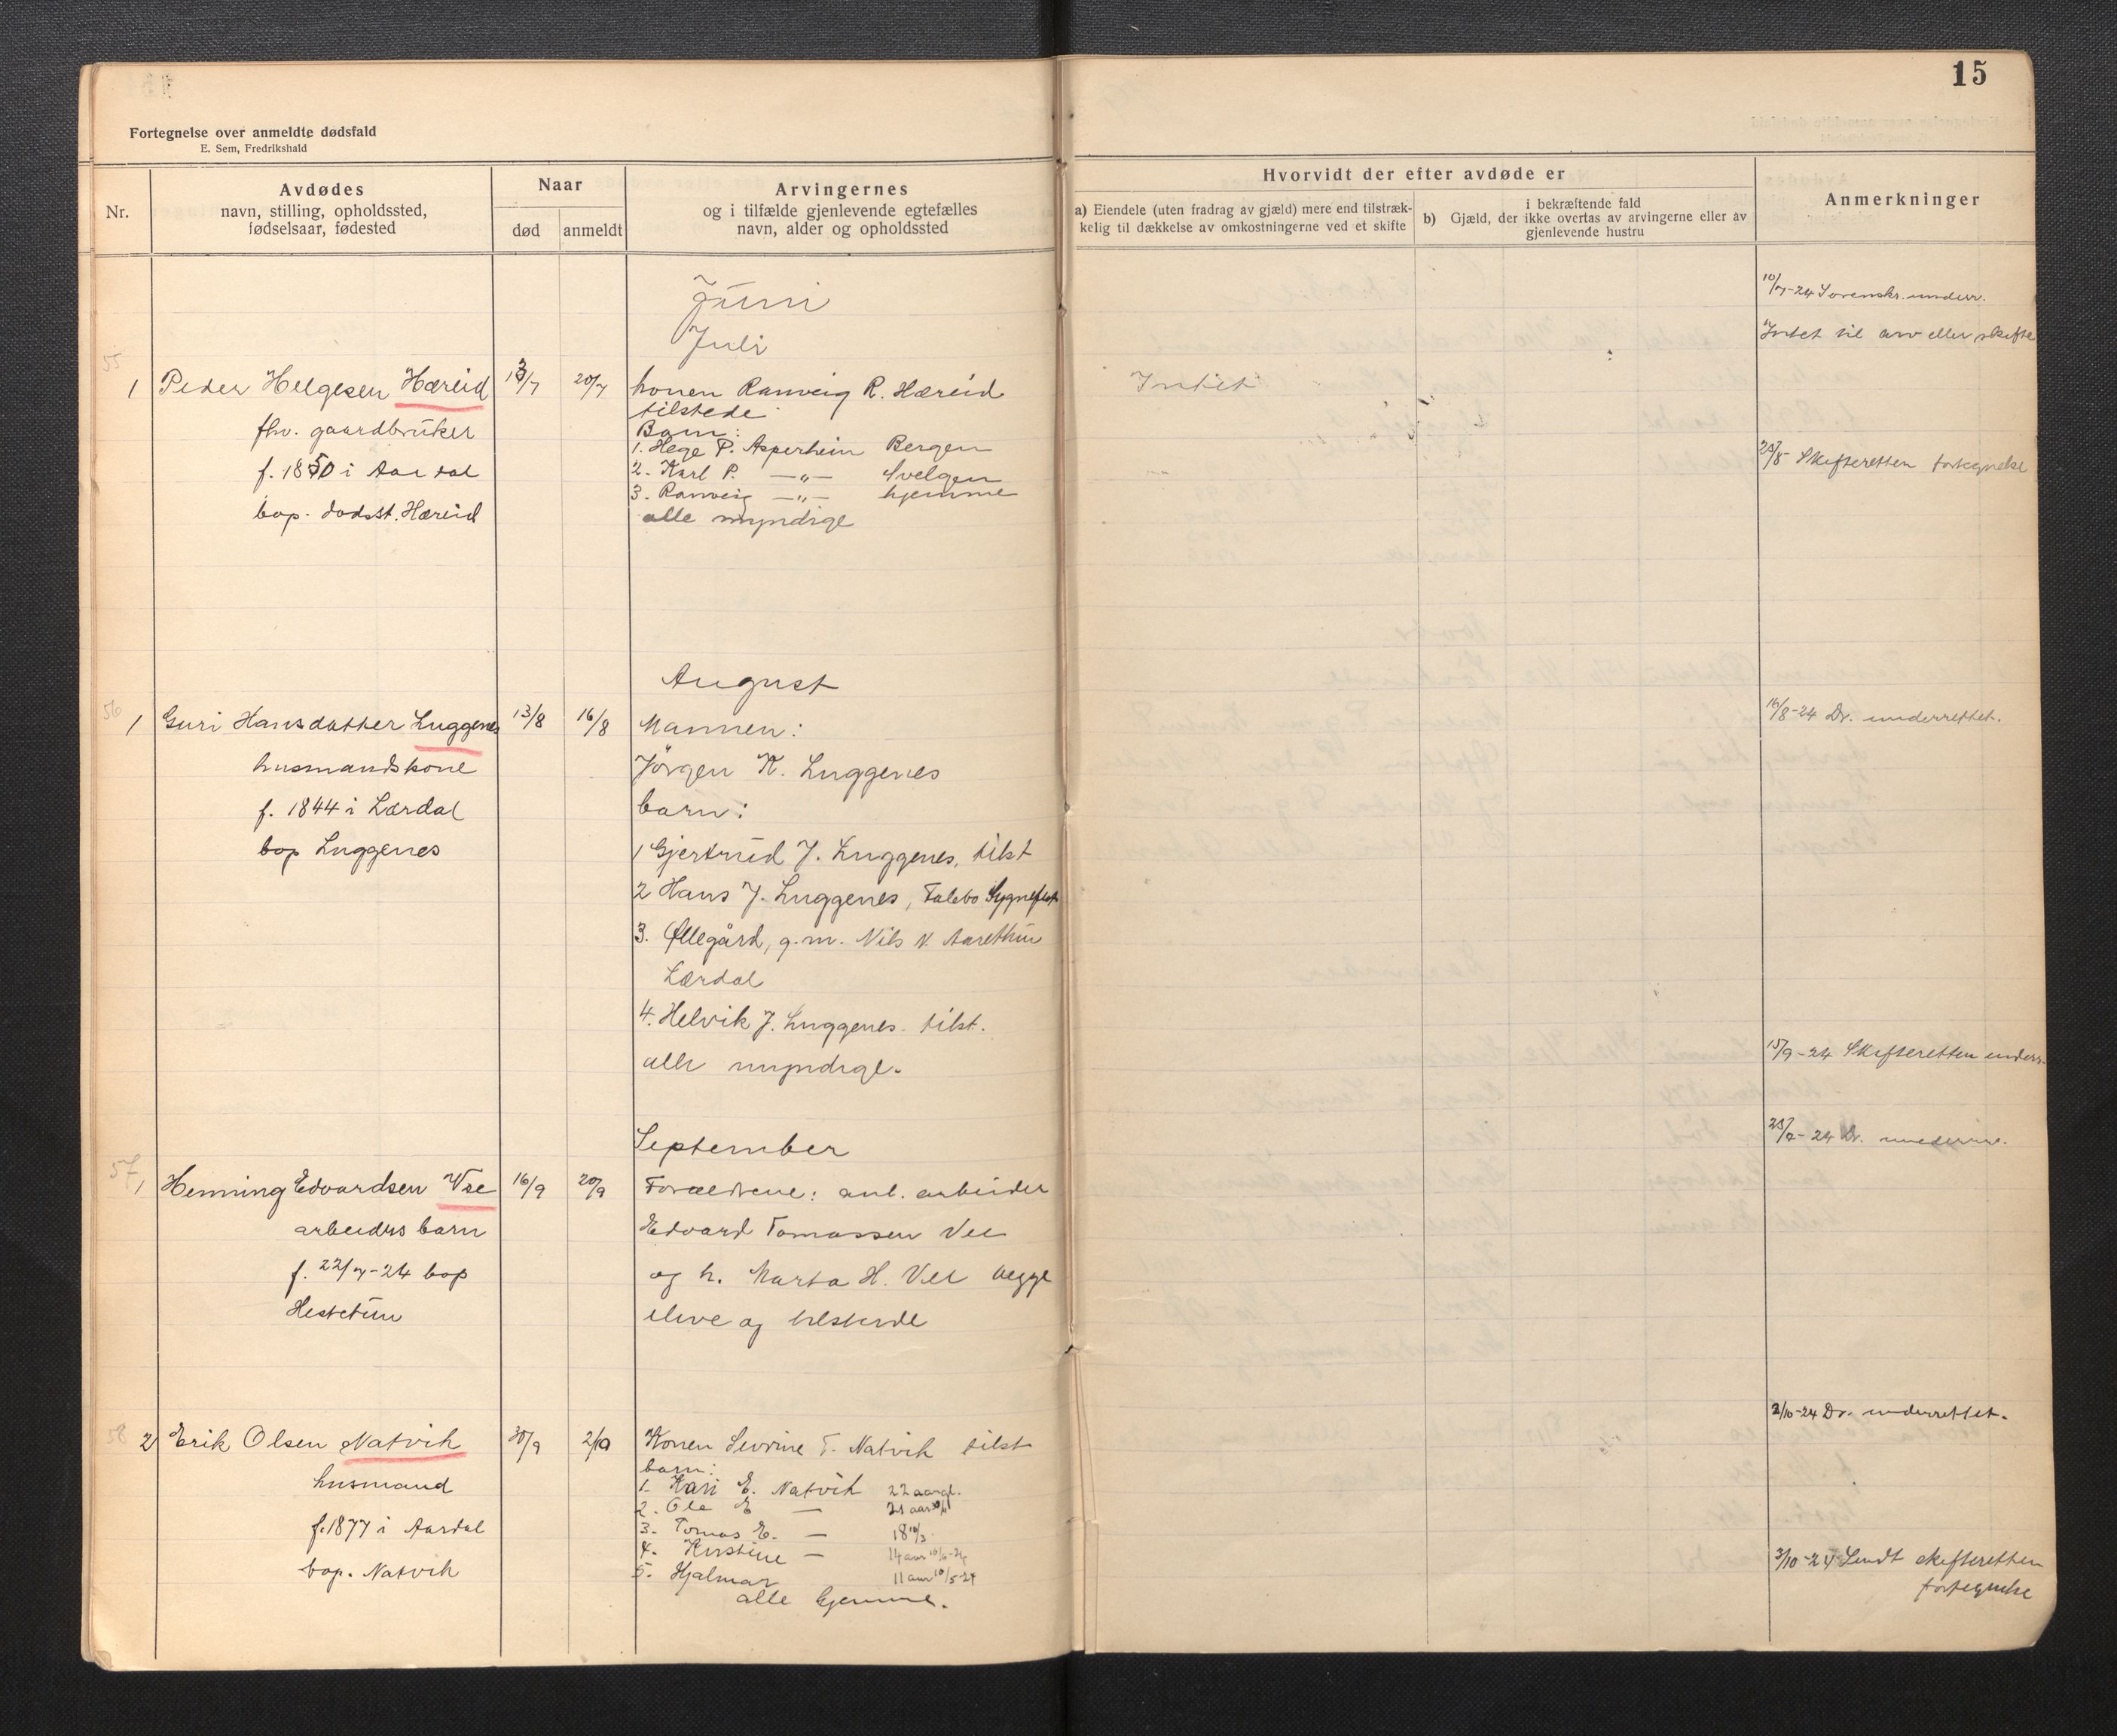 15
Fortegnelse over anmeldte dødsfald
E. Sem, Fredrikshald
Nr.
Avdødes
navn, stilling, opholdssted,
fødselsaar, fødested
Naar
død
anmeldt
Arvingernes
og i tilfælde gjenlevende egtefælles
navn, alder og opholdssted
Hvorvidt der efter avdøde er
a) Eiendele (uten fradrag av gjæld) mere end tilstræk-
kelig til dækkelse av omkostningerne ved et skifte
i bekræftende fald
b) Gjæld, der ikke overtas av arvingerne eller av
gjenlevende hustru
Anmerkninger
Juni
Juli
10/7-24 Sorenskr. underr.
Intet til arv eller skifte
55
1 Peder Helgesen Hæreid 13/7 20/7
fhv. gaardbruker
f. 1850 i Aardal
bop. dødsst. Hæreid
konen Ranveig R. Hæreid
tilstede
Barn:
1. Hege P. Asperheim Bergen
2. Karl P. —"— Svelgen
3. Ranveig —"— hjemme
alle myndige
Intet
25/8 Skifteretten fortegnelse
August
56
1 Guri Hansdatter Luggenes 13/8 16/8
husmandskone
f. 1844 i Lærdal
bop Luggenes
Mannen:
Jörgen K. Luggenes
barn:
1 Gjertrud J. Luggenes, tilst
2 Hans J. Luggenes, Falebo Sygnefest
3. Øllegård, g.m. Nils N. Aarethun
Lærdal
4. Helvik J. Luggenes. tilst.
alle myndige.
16/8-24 Dr. underrettet.
15/9-24 Skifteretten underr.
September
57
1 Henning Edvardsen Vee 16/9 20/9
arbeiders barn
f. 22/7-24 bop
Hestetun
Forældrene: anl. arbeider
Edvard Tomassen Vee
og h. Marta H. Vee begge
ilive og tilstede
24 Dr.
58
2 Erik Olsen Natvik 30/9 2/10
husmand
f. 1877 i Aardal
bop. Natvik
Konen Sevrine T. Natvik tilst
barn:
1. Kari E. Natvik 22 aar
2. Ole E — 21 aar
3. Tomas E. — 18
4. Kirstine — 14 aar
5. Hjalmar 11 aar 10/5-24
alle hjemme.
2/10-24 Dr. underrettet.
3/10-24 Sendt skifteretten
fortegnelse